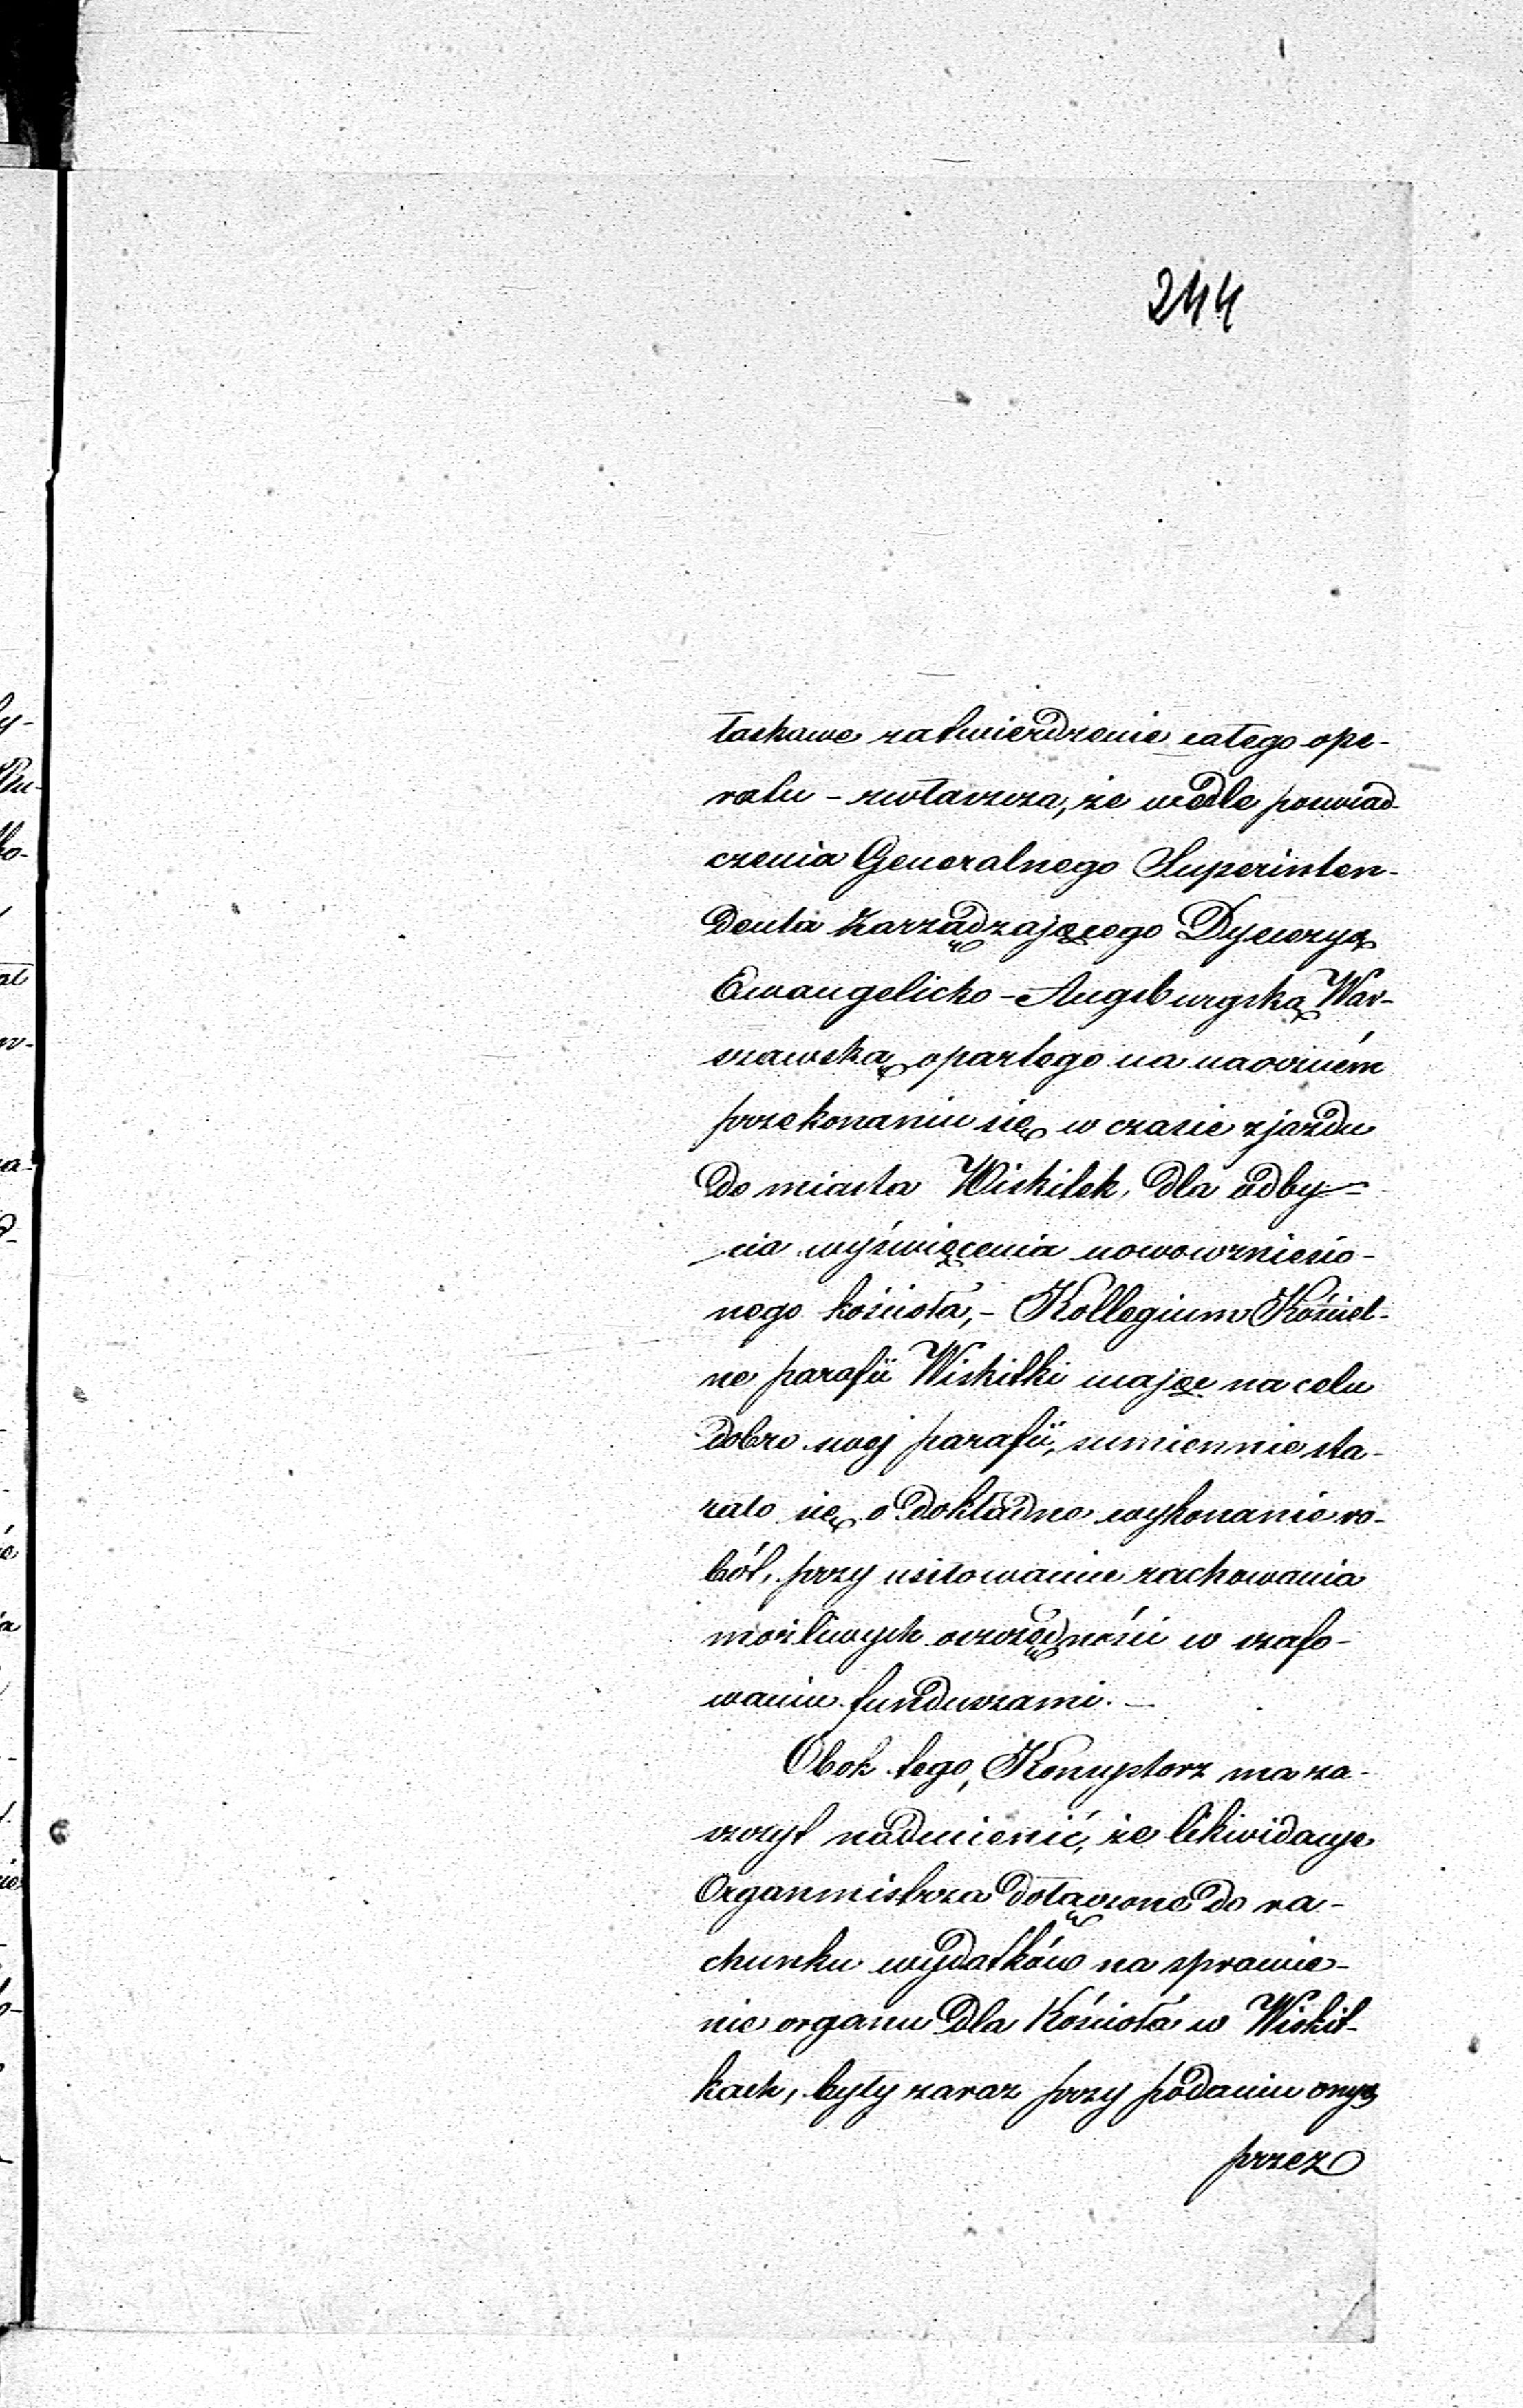 244
łaskawe zatwierdzenie całego ope-
ratu - zwłaszcza, że wedle poświad-
czenia Generalnego Superinten-
denta Zarządzającego Dyecezyą
Ewangelicko-Augsburgską War-
szawską opartego na naoczném
przekonaniu się w czasie zjazdu
do miasta Wiskitek, dla odby-
cia wyświęcenia nowowzniesio-
nego kościoła, - Kollegium Kościel-
ne parafii Wiskitki mając na celu
dobro swej parafii, sumiennie sta-
rało się o dokładne wykonanie ro-
bót, przy usiłowaniu zachowania
możliwych oszczędności w szafo-
waniu funduszami. -
Obok tego, Konsystorz ma za-
szczyt nadmienić, że likwidacye
Organmistrza dołączone do ra-
chunku wydatków na sprawie-
nie organu dla Kościoła w Wiskit-
kach, były zaraz przy podaniu onych
przez